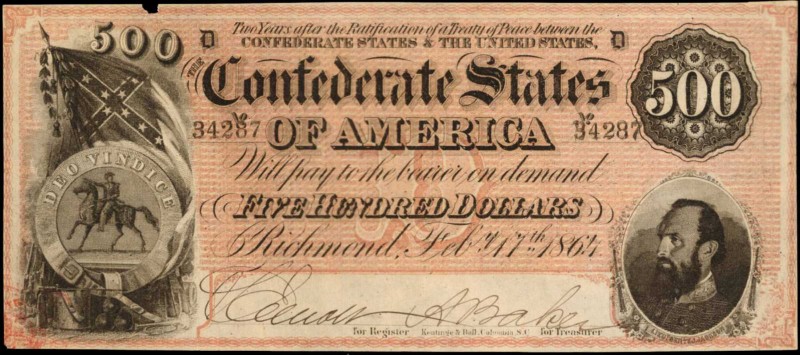 Two Years after the Ratification of a Treaty of Peace between the
CONFEDERATE STATES & THE UNITED STATES,
500 D D 500
THE Confederate States
34287 OF AMERICA 34287
DEO VINDICE
Will pay to the bearer on demand
FIVE HUNDRED DOLLARS
Richmond, Feby. 17th 1864
A Baker
for Register Keatinge & Ball, Columbia, S.C. for Treasurer